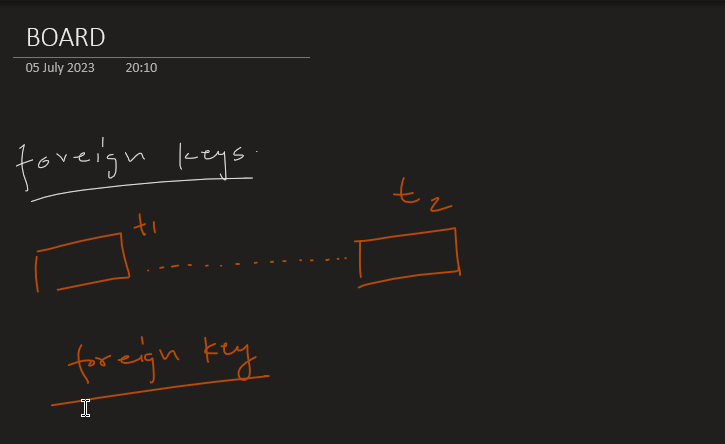 BOARD
05 July 2023 20:10
foreign keys.
t1
t2
foreign key